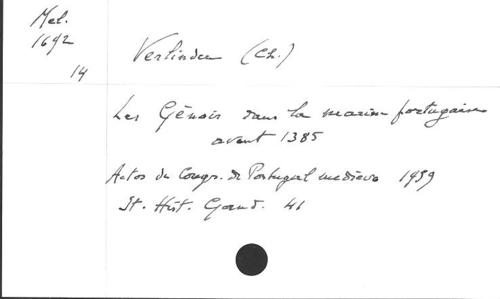 Mel.
1692
14
Verlinden (Ch.)
Les Génois dans la marine portugaise
avant 1385
Actos do Congr. de Portugal medievo 1959
St. Hist. Gand. 41